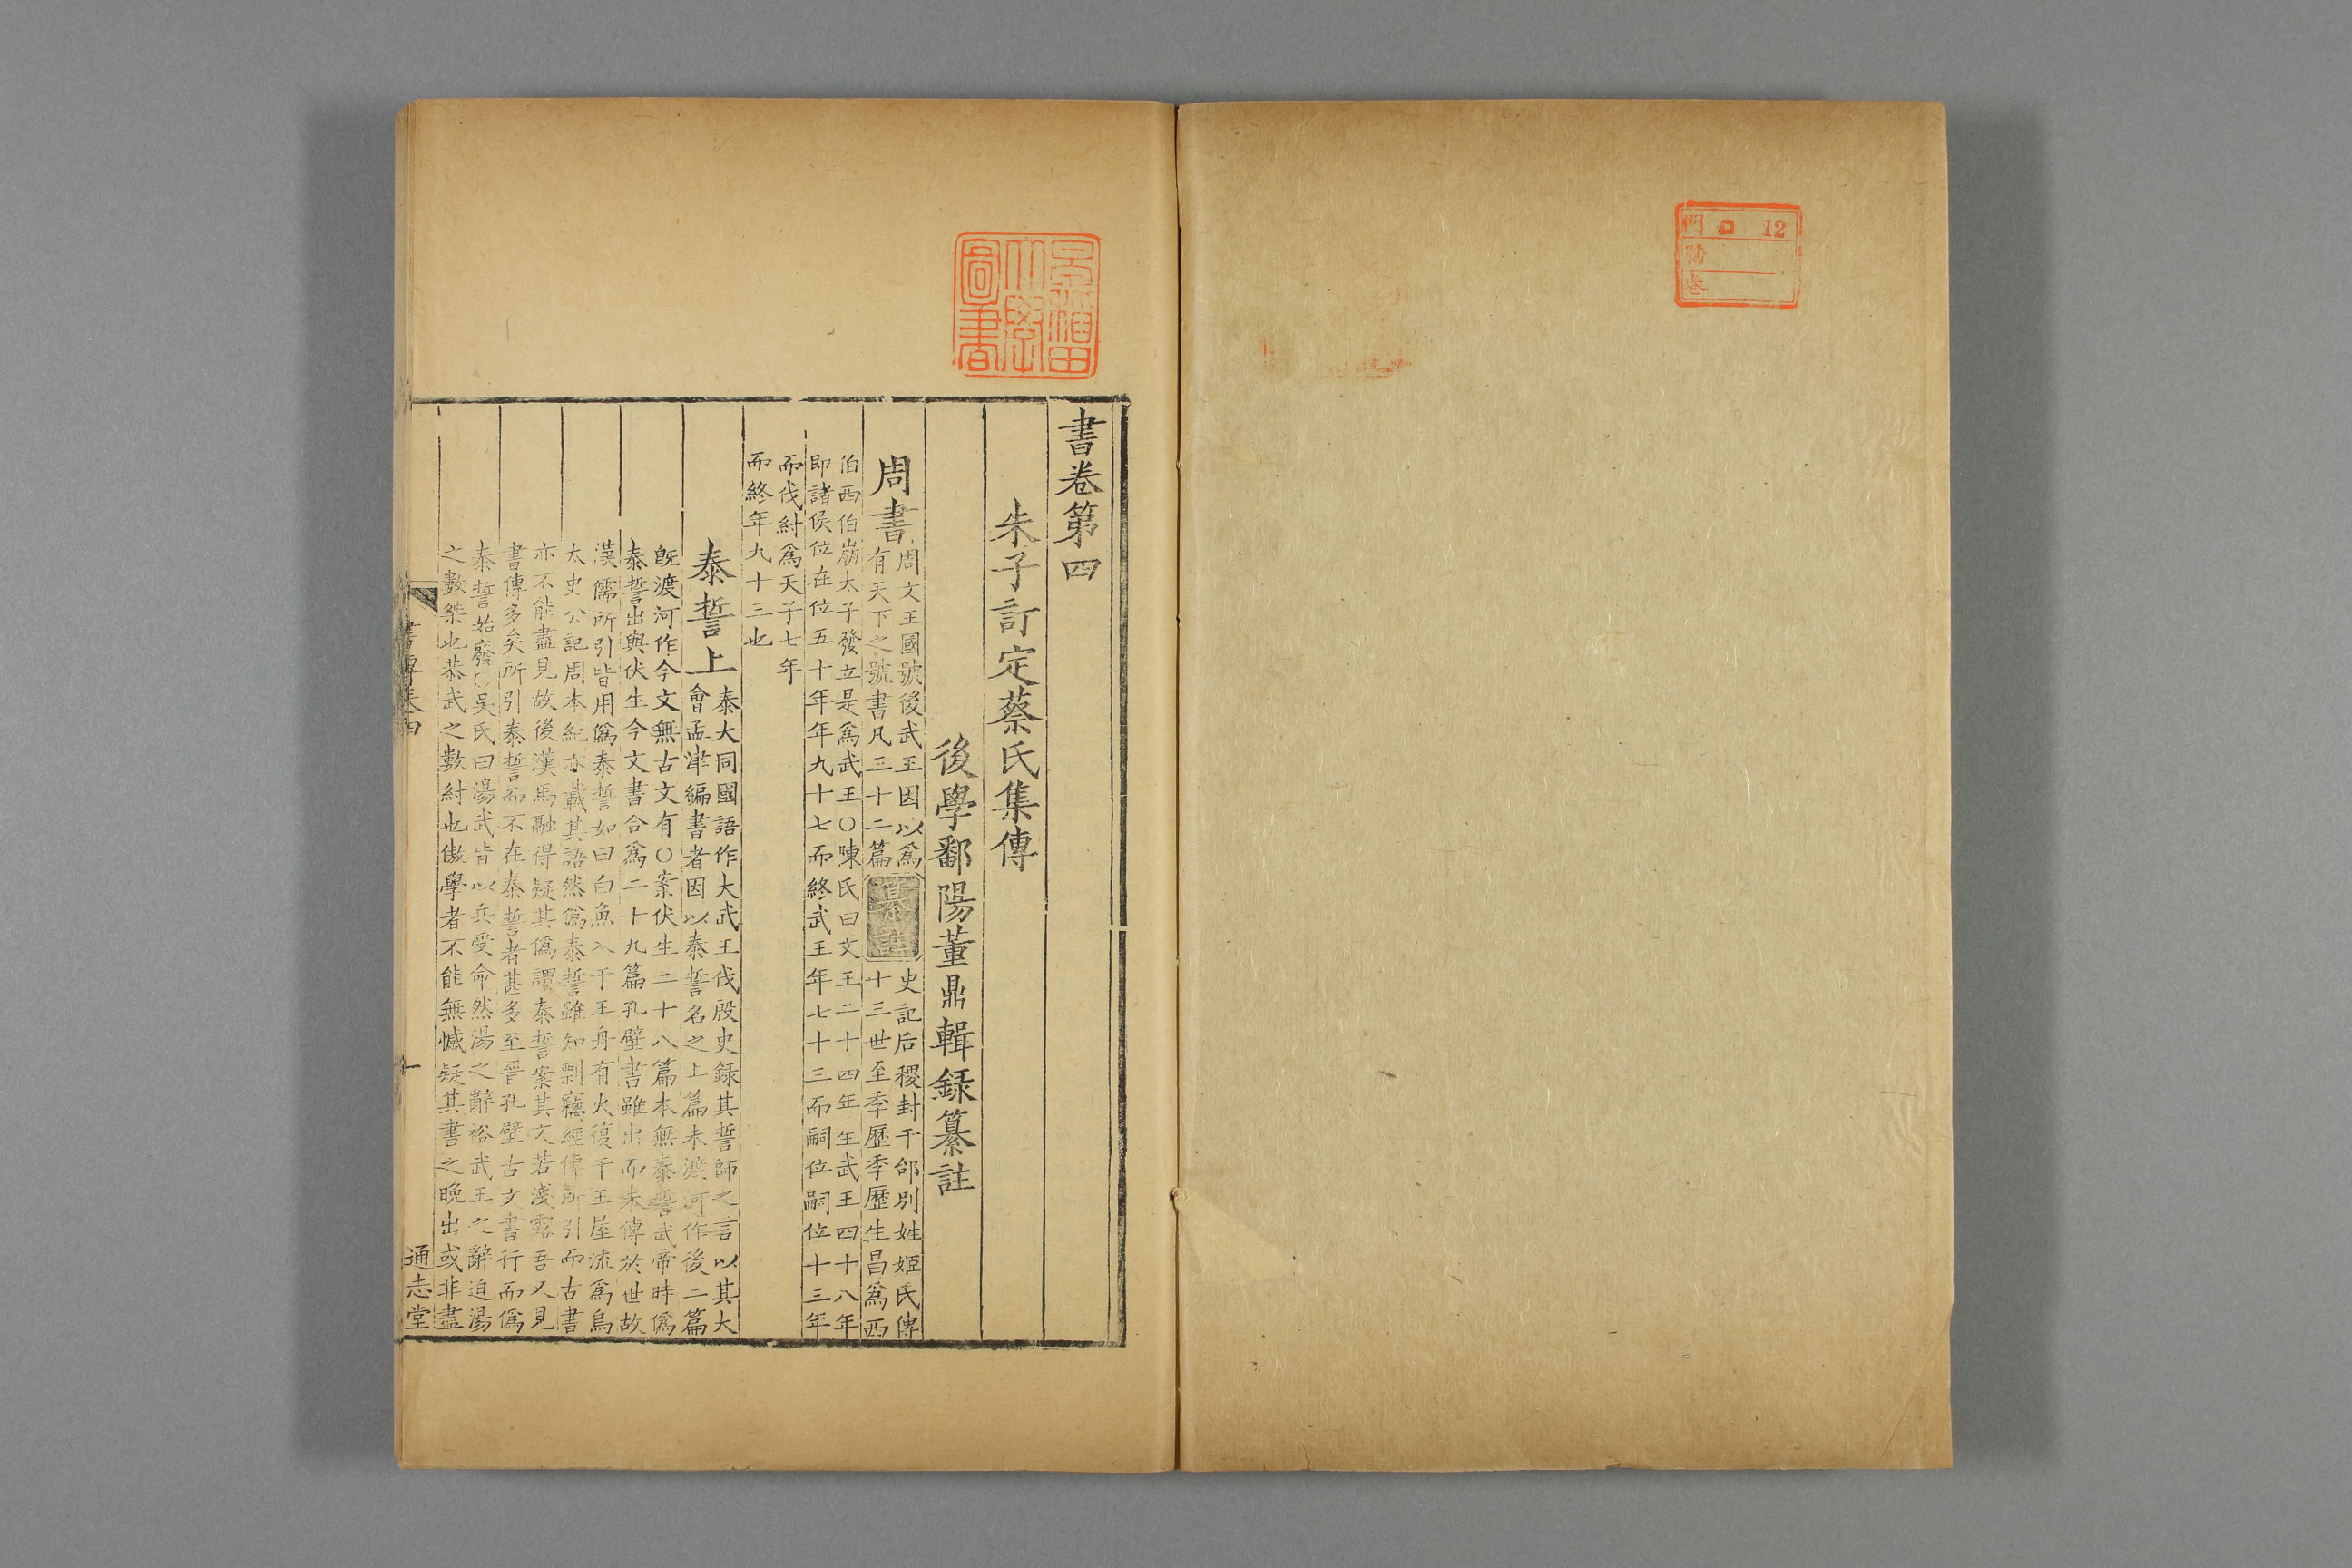 門 口 12
號
卷
早稲田
大學
圖書
書卷第四
朱子訂定蔡氏集傳
後學鄱陽董鼎輯録纂註
周書
周文王國號後武王因以爲
有天下之號書凡三十二篇
纂註
史記后稷封于邰別姓姬氏傳
十三世至季歷季歷生昌爲西
伯西伯崩太子發立是爲武王○陳氏曰文王二十四年生武王四十八年
即諸侯位在位五十年年九十七而終武王年七十三而嗣位嗣位十三年
而伐紂爲天子七年
而終年九十三也
泰誓上
泰大同國語作大武王伐殷史録其誓師之言以其大
會孟津編書者因以泰誓名之上篇未渡河作後二篇
旣渡河作今文無古文有○案伏生二十八篇本無泰誓武帝時僞
泰誓出與伏生今文書合爲二十九篇孔壁書雖出而未傳於世故
漢儒所引皆用僞泰誓如曰白魚入于王舟有火復于王屋流爲烏
太史公記周本紀亦載其語然僞泰誓雖知剽竊經傳所引而古書
亦不能盡見故後漢馬融得疑其僞謂泰誓案其文若淺露吾又見
書傳多矣所引泰誓而不在泰誓者甚多至晉孔壁古文書行而僞
泰誓始廢○吳氏曰湯武皆以兵受命然湯之辭裕武王之辭迫湯
之數桀也恭武之數紂也傲學者不能無憾疑其書之晚出或非盡
書傳卷四
一
通志堂